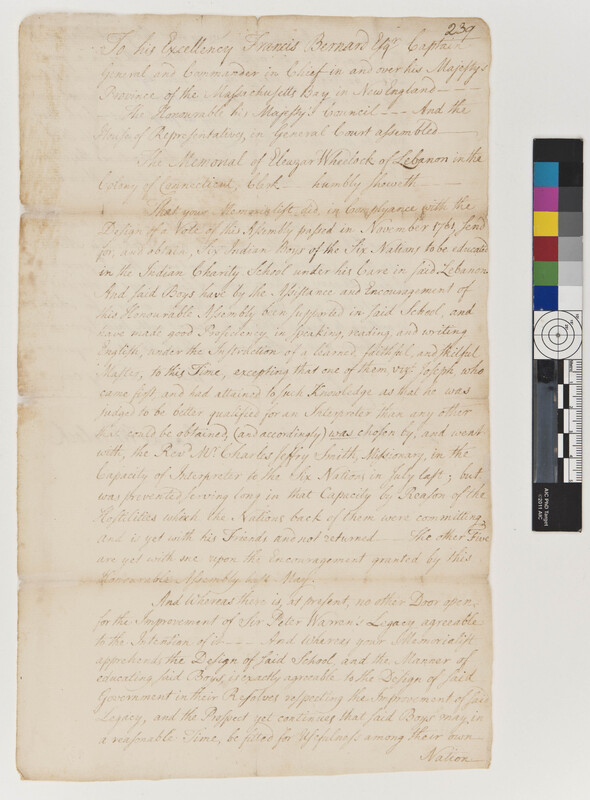 239
To his Excellency Francis Bernard Esqr. Captain
General and Commander in Chief in and over his Majesty's
Province of the Massachusetts Bay in New England
The Honourable his Majesty's Council And the
House of Representatives, in General Court assembled
The Memorial of Eleazar Wheelock of Lebanon in the
Colony of Connecticut, Clerk humbly sheweth
That your Memorialist, did, in Complyance with the
Design of a Vote of this Assembly passed in November 1761, send
for, and obtain, Six Indian Boys of the Six Nations to be educated
in the Indian Charity School under his Care in said Lebanon
And said Boys have by the Assistance and Encouragement of
this Honourable Assembly been supported in said School, and
have made good Proficiency, in speaking, reading, and writing
English, under the Instruction of a learned, faithful, and skilful
Master, to this Time, excepting that one of them viz. Joseph, who
came first, and had attained to such Knowledge as that he was
judged to be better qualified for an Interpreter than any other
that could be obtained, (and accordingly) was chosen by, and went
with, the Revd. Mr. Charles Jeffry Smith, Missionary, in the
Capacity of Interpreter to the Six Nations in July last; but
was prevented serving long in that Capacity by Reason of the
Hostilities which the Nations back of them were committing
and is yet with his Friends and not returned The other Five
are yet with me upon the Encouragement granted by this
Honourable Assembly last May.
And Whereas there is, at present, no other Door open,
for the Improvement of Sir Peter Warren's Legacy agreeable
to the Intention of it And whereas your Memorialist
apprehends the Design of said School, and the Manner of
educating said Boys, is exactly agreeable to the Design of said
Government in their Resolves respecting the Improvement of said
Legacy, and the Prospect yet continues that said Boys may, in
a reasonable Time, be fitted for Usefulness among their own
Nation
AIC PhD Target
©2011 AIC